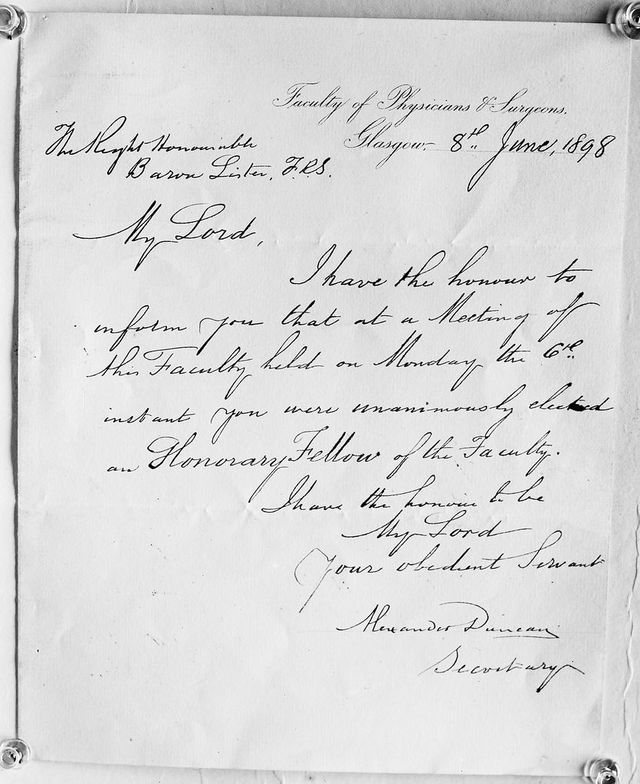 Faculty of Physicians & Surgeons.
Glasgow, 8th June, 1898
The Right Honourable
Baron Lister, F.R.S.
My Lord,
I have the honour to
inform you that at a Meeting of
this Faculty held on Monday the 6th
instant you were unanimously elected
an Honorary Fellow of the Faculty.
I have the honour to be
My Lord
Your obedient Servant
Alexander Duncan
Secretary